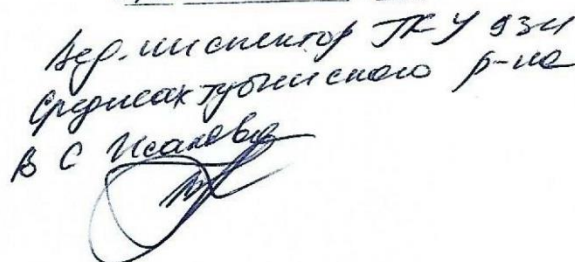 Вед. инспектор ГКУ ЦЗН
Среднеахтубинского р-на
В С Исакова